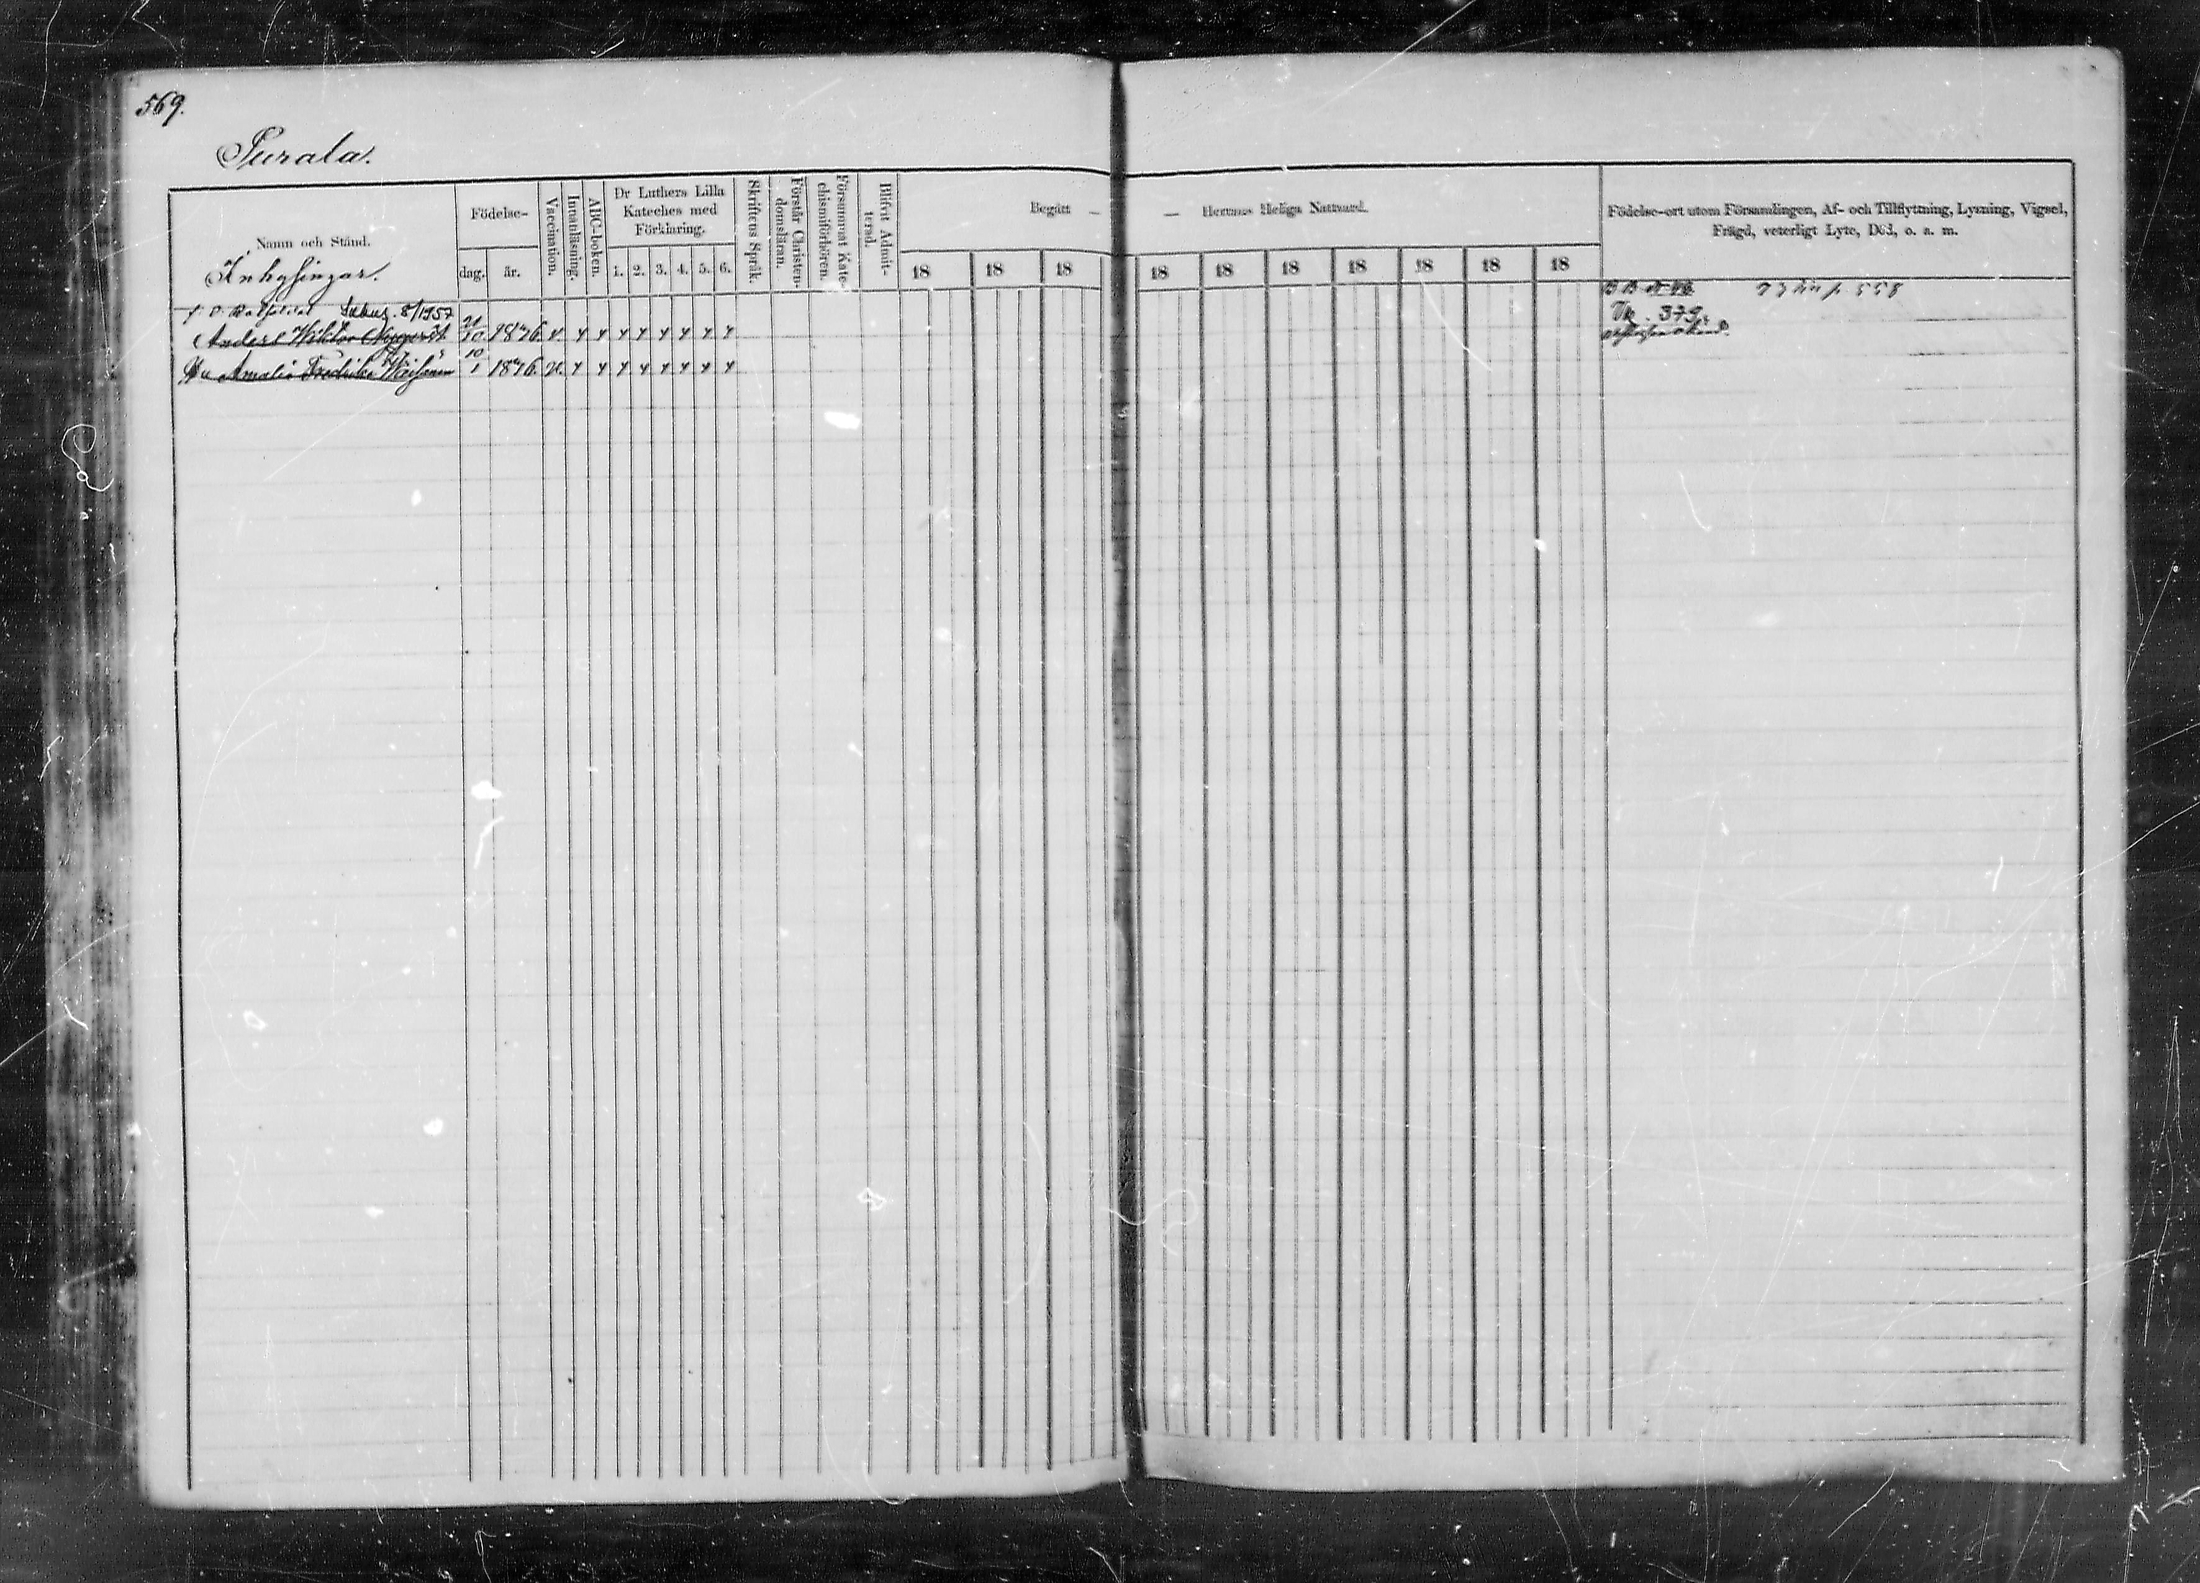 569.
Purala.
Namn och Stånd.
Inhysingar.
Födelse-
dag.
år.
Vaccination.
Innanläsning.
ABC-boken.
Dr Luthers Lilla
Kateches med
Förklaring.
1. 2. 3. 4. 5. 6.
Skriftens Språk.
Förstår Christen-
domsläran.
Försummat Kate-
chismiförhören.
Blifvit Admit-
terad.
Begått — — Herrans Heliga Nattvard.
18 18 18 18 18 18 18 18 18 18
Födelse-ort utom Församlingen, Af- och Tillflyttning, Lysning, Vigsel,
Frägd, veterligt Lyte, Död, o. a. m.
8/1957
558
Anders Wiktor 21/10 1876. v. x x x x x x x x
379.
Amalia Fredrika 10/1 1876. x x x x x x x x